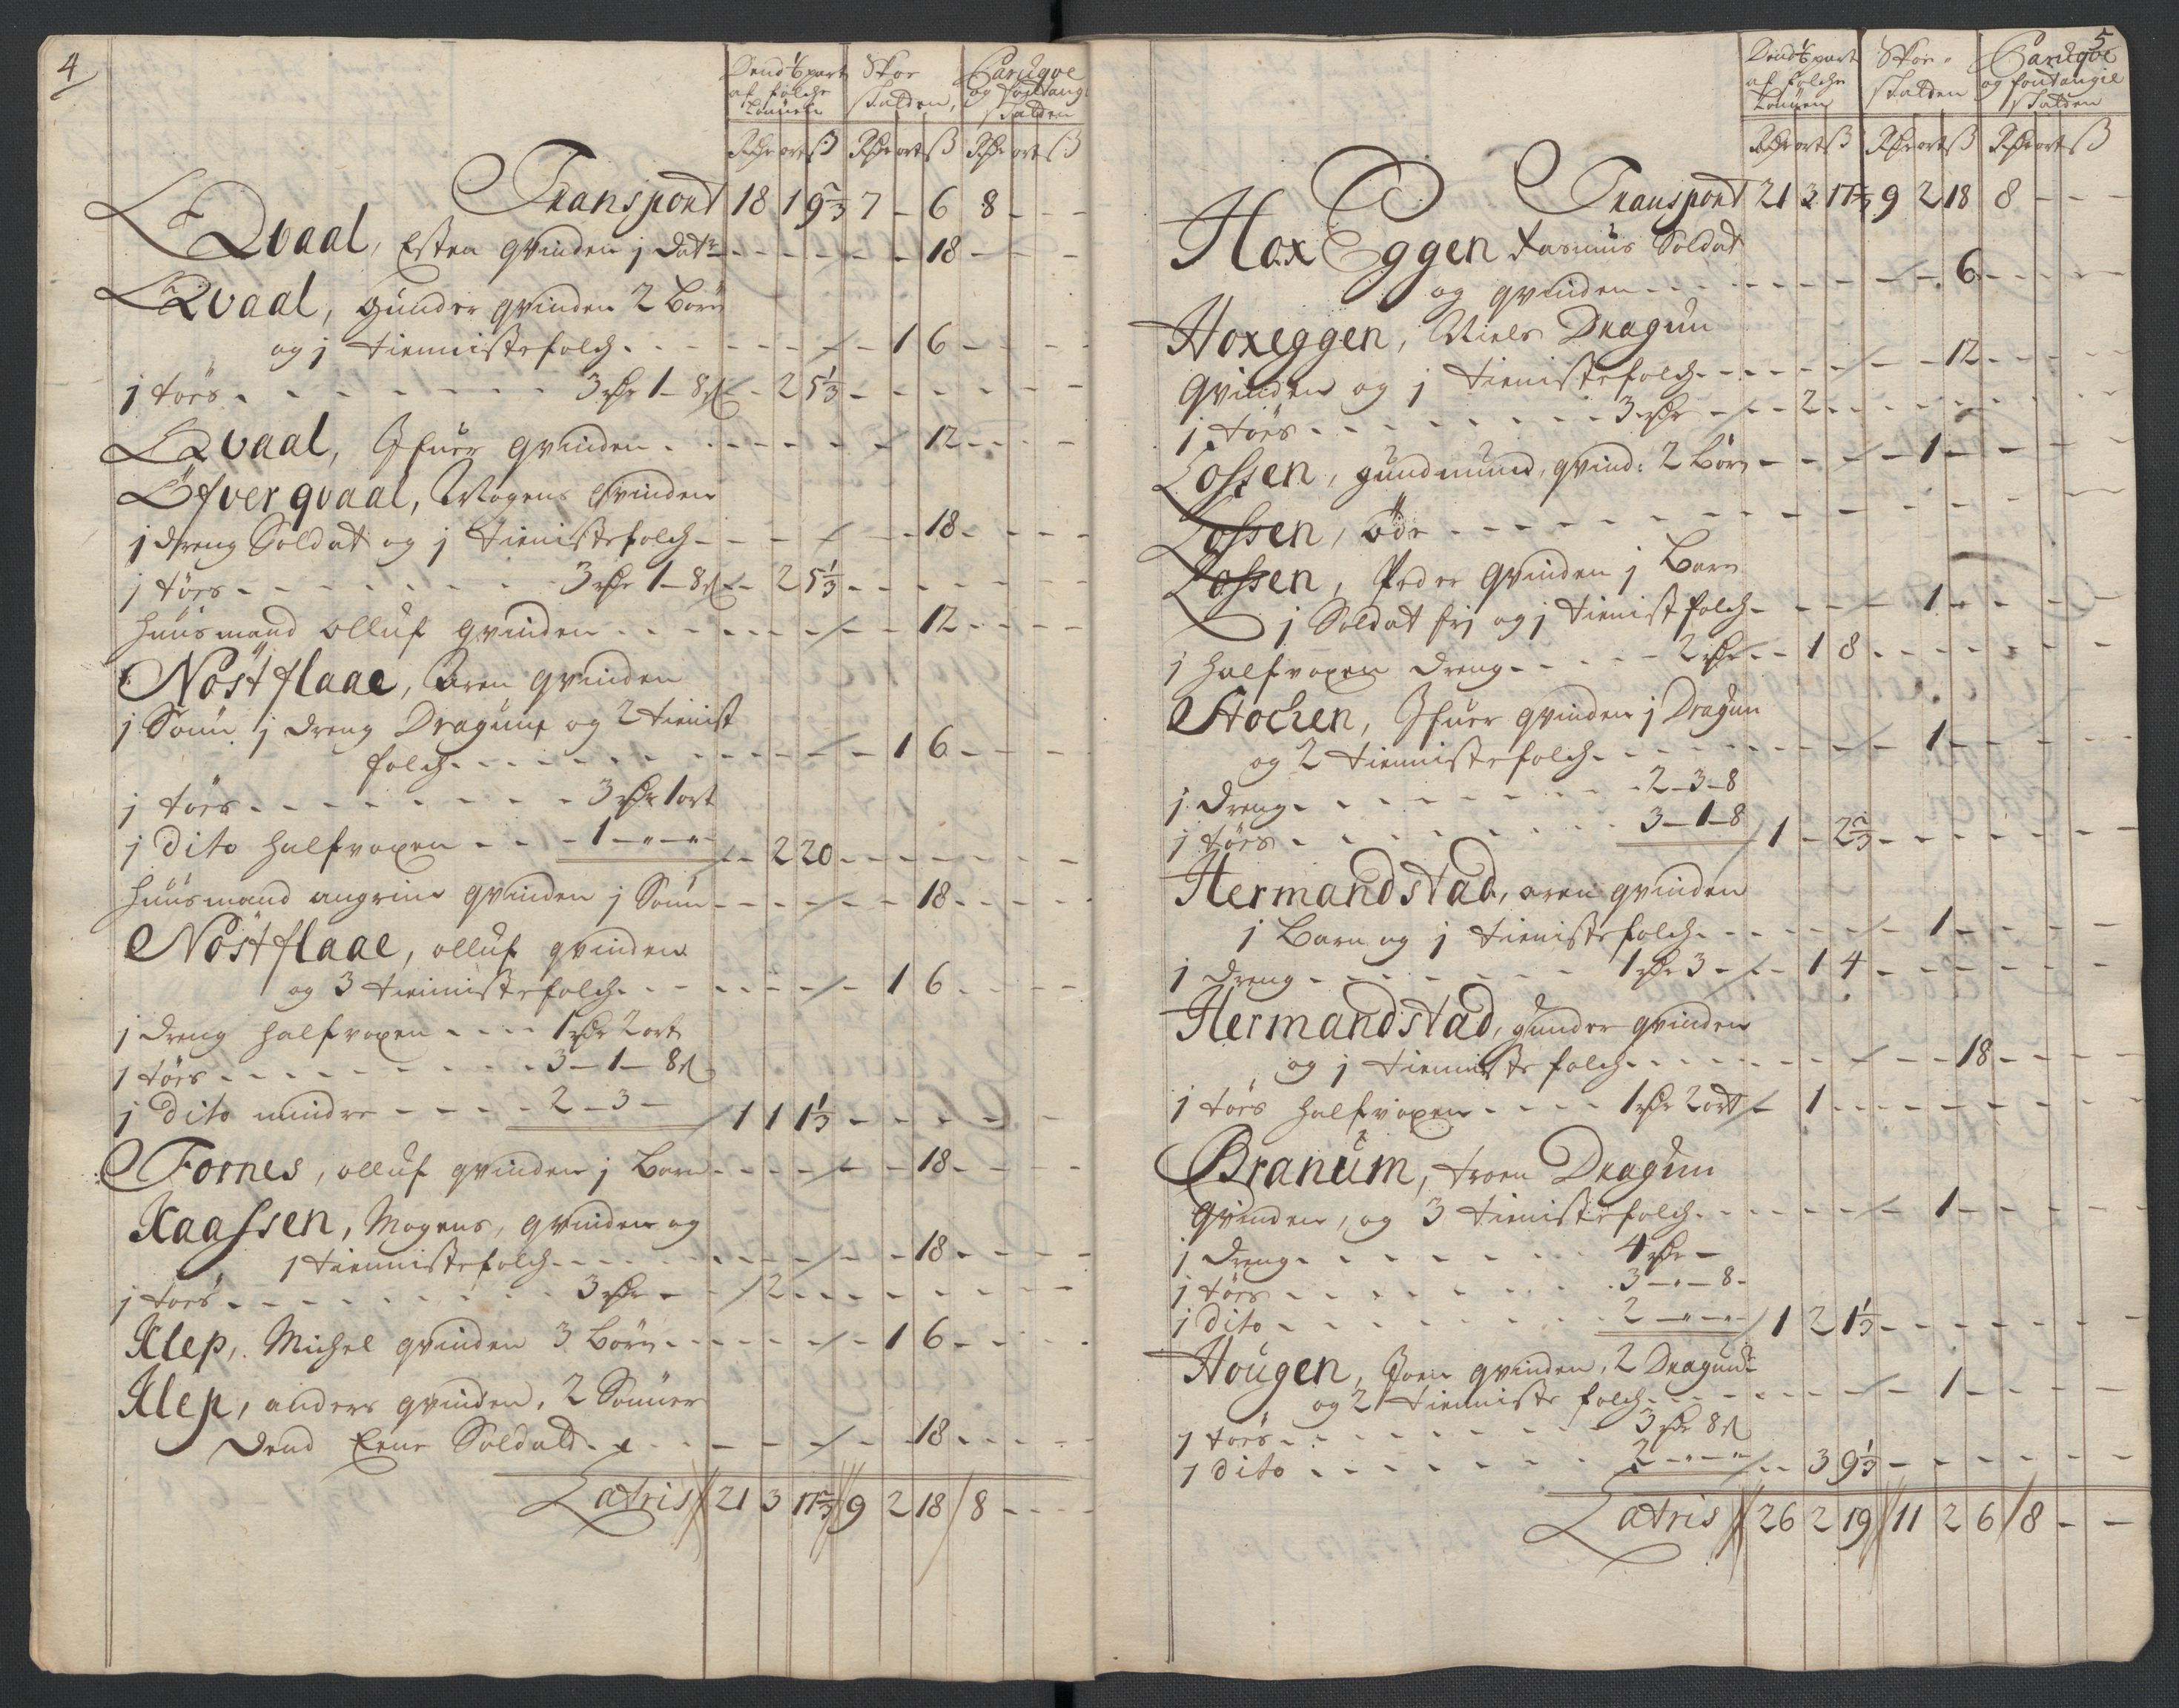 4
Dend 1/6 part af folche Lønnen
Skoe skatden,
Carudqve og fontang: skatden
Rdr ort ß Rdr ort ß Rdr ort ß
Transport 18 1 9 2/3 7 - 6 8 - -
Qvaal, Esten qvinden j datr - - - 18 - -
Qvaal, Gunder qvinden 2 børn
og j tiennistefolch - - - 1 6 - -
j tøes - - - 3 rdr 1 - 8 ß - 2 5 1/3 - - -
Qvaal, Ifuer qvinden - - - 12 - -
Øfver qvaal, Mogens qvinden
j dreng Soldat og j tienistefolch - - - 18 - -
j tøes - - - 3 rdr 1 - 8 ß - 2 5 1/3 - - -
Huusmand olluf qvinden - - - 12 - -
Nøstflaae, Aren qvinden
j Sønn j dreng Dragun og 2 tienist
folch - - - 1 6 - -
j tøes - - - 3 rdr 1 ort
j dito halfvoxen - - - 1 - " - " - 2 20 - - -
Huusmand angrim qvinden j Sønn - - - 18 - -
Nøstflaae, olluf qvinden
og 3 tiennistefolch - - - 1 6 - -
j dreng halfvoxen - - - 1 rdr 2 ort
1 tøes - - - 3 - 1 - 8 ß
j dito mindre - - - 2 - 3 - 1 1 1 1/3 - - -
Fornes, olluf qvinden j barn - - - 18 - -
Kaassen, Mogens, qvinden og
1 tiennistefolch - - - 18 - -
j tøes - - - 3 rdr - - 2 - - -
Klep, Michel qvinden 3 børn - - - 1 6 - -
Klep, anders qvinden, 2 Sønner
dend Eene Soldat - - - 18 - -
Latris 21 3 17 2/3 9 2 18 8 - -
5
Dend 1/6 part af folche Lønnen
Skoe skatden
Carudqve og fontangie skatden
Rdr ort ß Rdr ort ß Rdr ort ß
Transport 21 3 17 2/3 9 2 18 8 - -
Hox Eggen Rasmus Soldat
og qvinden - - - 6 - -
Hoxeggen, Niels Dragun
qvinden og j tienistefolch - - - 12 - -
1 tøes - - - 3 rdr - - 2 - - -
Lossen, gundmund, qvind: 2 børn - - - 1 - -
Lossen, øde - - -
Lossen, Peder qvinden j barn
j Soldat frj og j tienist folch - - - 1 - -
j halfvoxen dreng - - - 2 rdr - - 1 8 - - -
Stochen, Ifuer qvinden j Dragun
og 2 tiennistefolch - - - 1 - -
j dreng - - - 2 - 3 - 8
j tøes - - - 3 - 1 - 8 1 - 2 2/3 - - -
Hermandstad, aren qvinden
1 barn og j tienistefolch - - - 1 - -
j dreng - - - 1 rdr 3 - - 1 4 - - -
Hermandstad, gunder qvinden
og j tienniste folch - - - 18 - -
j tøes halfvoxen - - - 1 rdr 2 ort - 1 - - -
Branum, troen Dragun
qvinden, og 3 tienistefolch - - - 1 - -
j dreng - - - 4 rdr -
j tøes - - - 3 - " - 8 -
j dito - - - 2 - " - " - 1 2 1 1/3 - - -
Hougen, Joen qvinden, 2 Dragun
og 2 tienniste folch - - - 1 - -
1 tøes - - - 3 rdr 8 ß
1 dito - - - 2 - " - " - - 3 9 1/3 - - -
Latris 26 2 19 11 2 6 8 - -